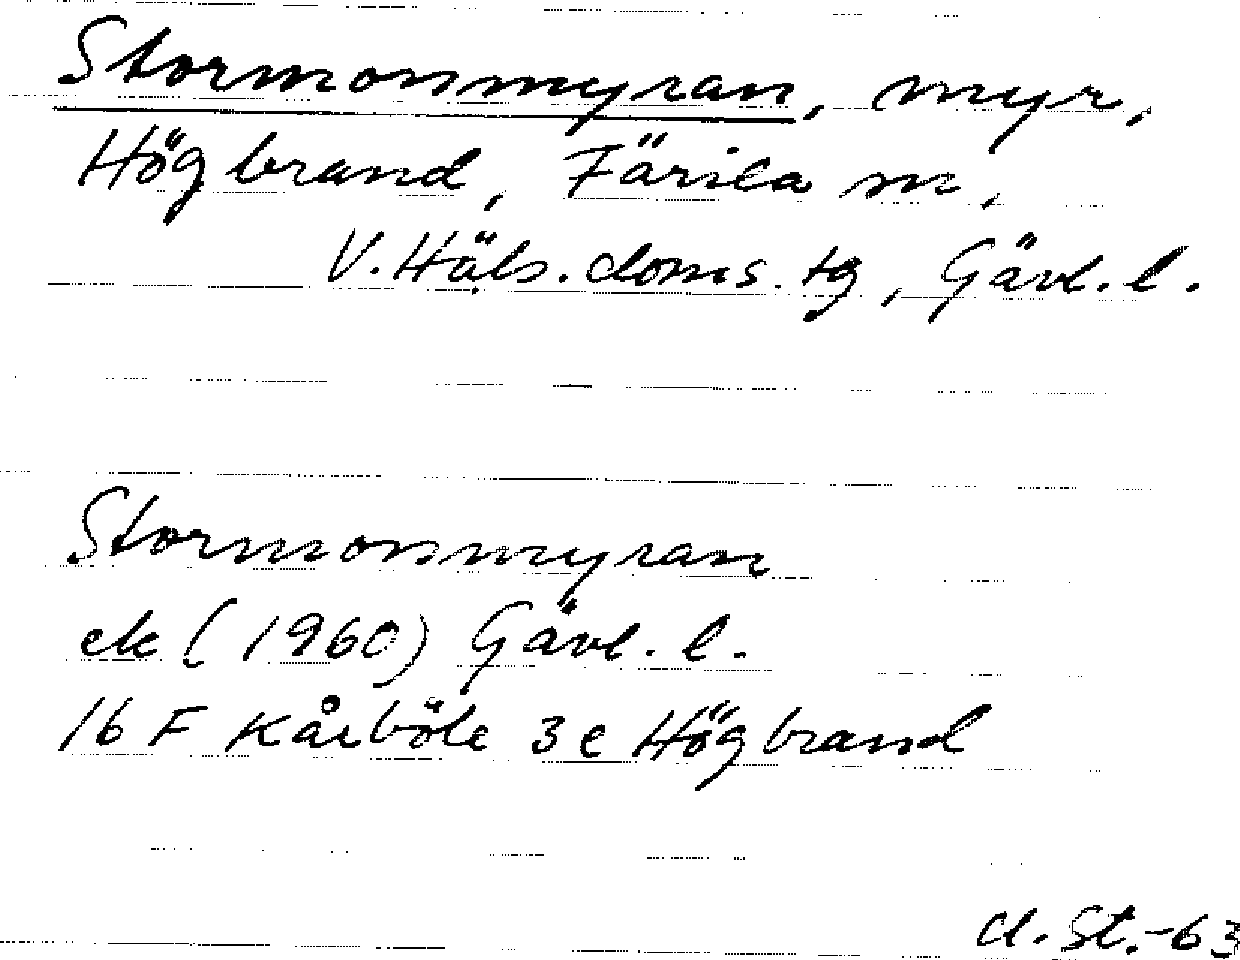 Stormonmyran, myr,
Högbrand, Färila sn,
V. Häls. doms. tg, Gävl. l.
Stormonmyran
ek (1960) Gävl. l.
16 F Kårböle 3 e Högbrand
d. St. -63